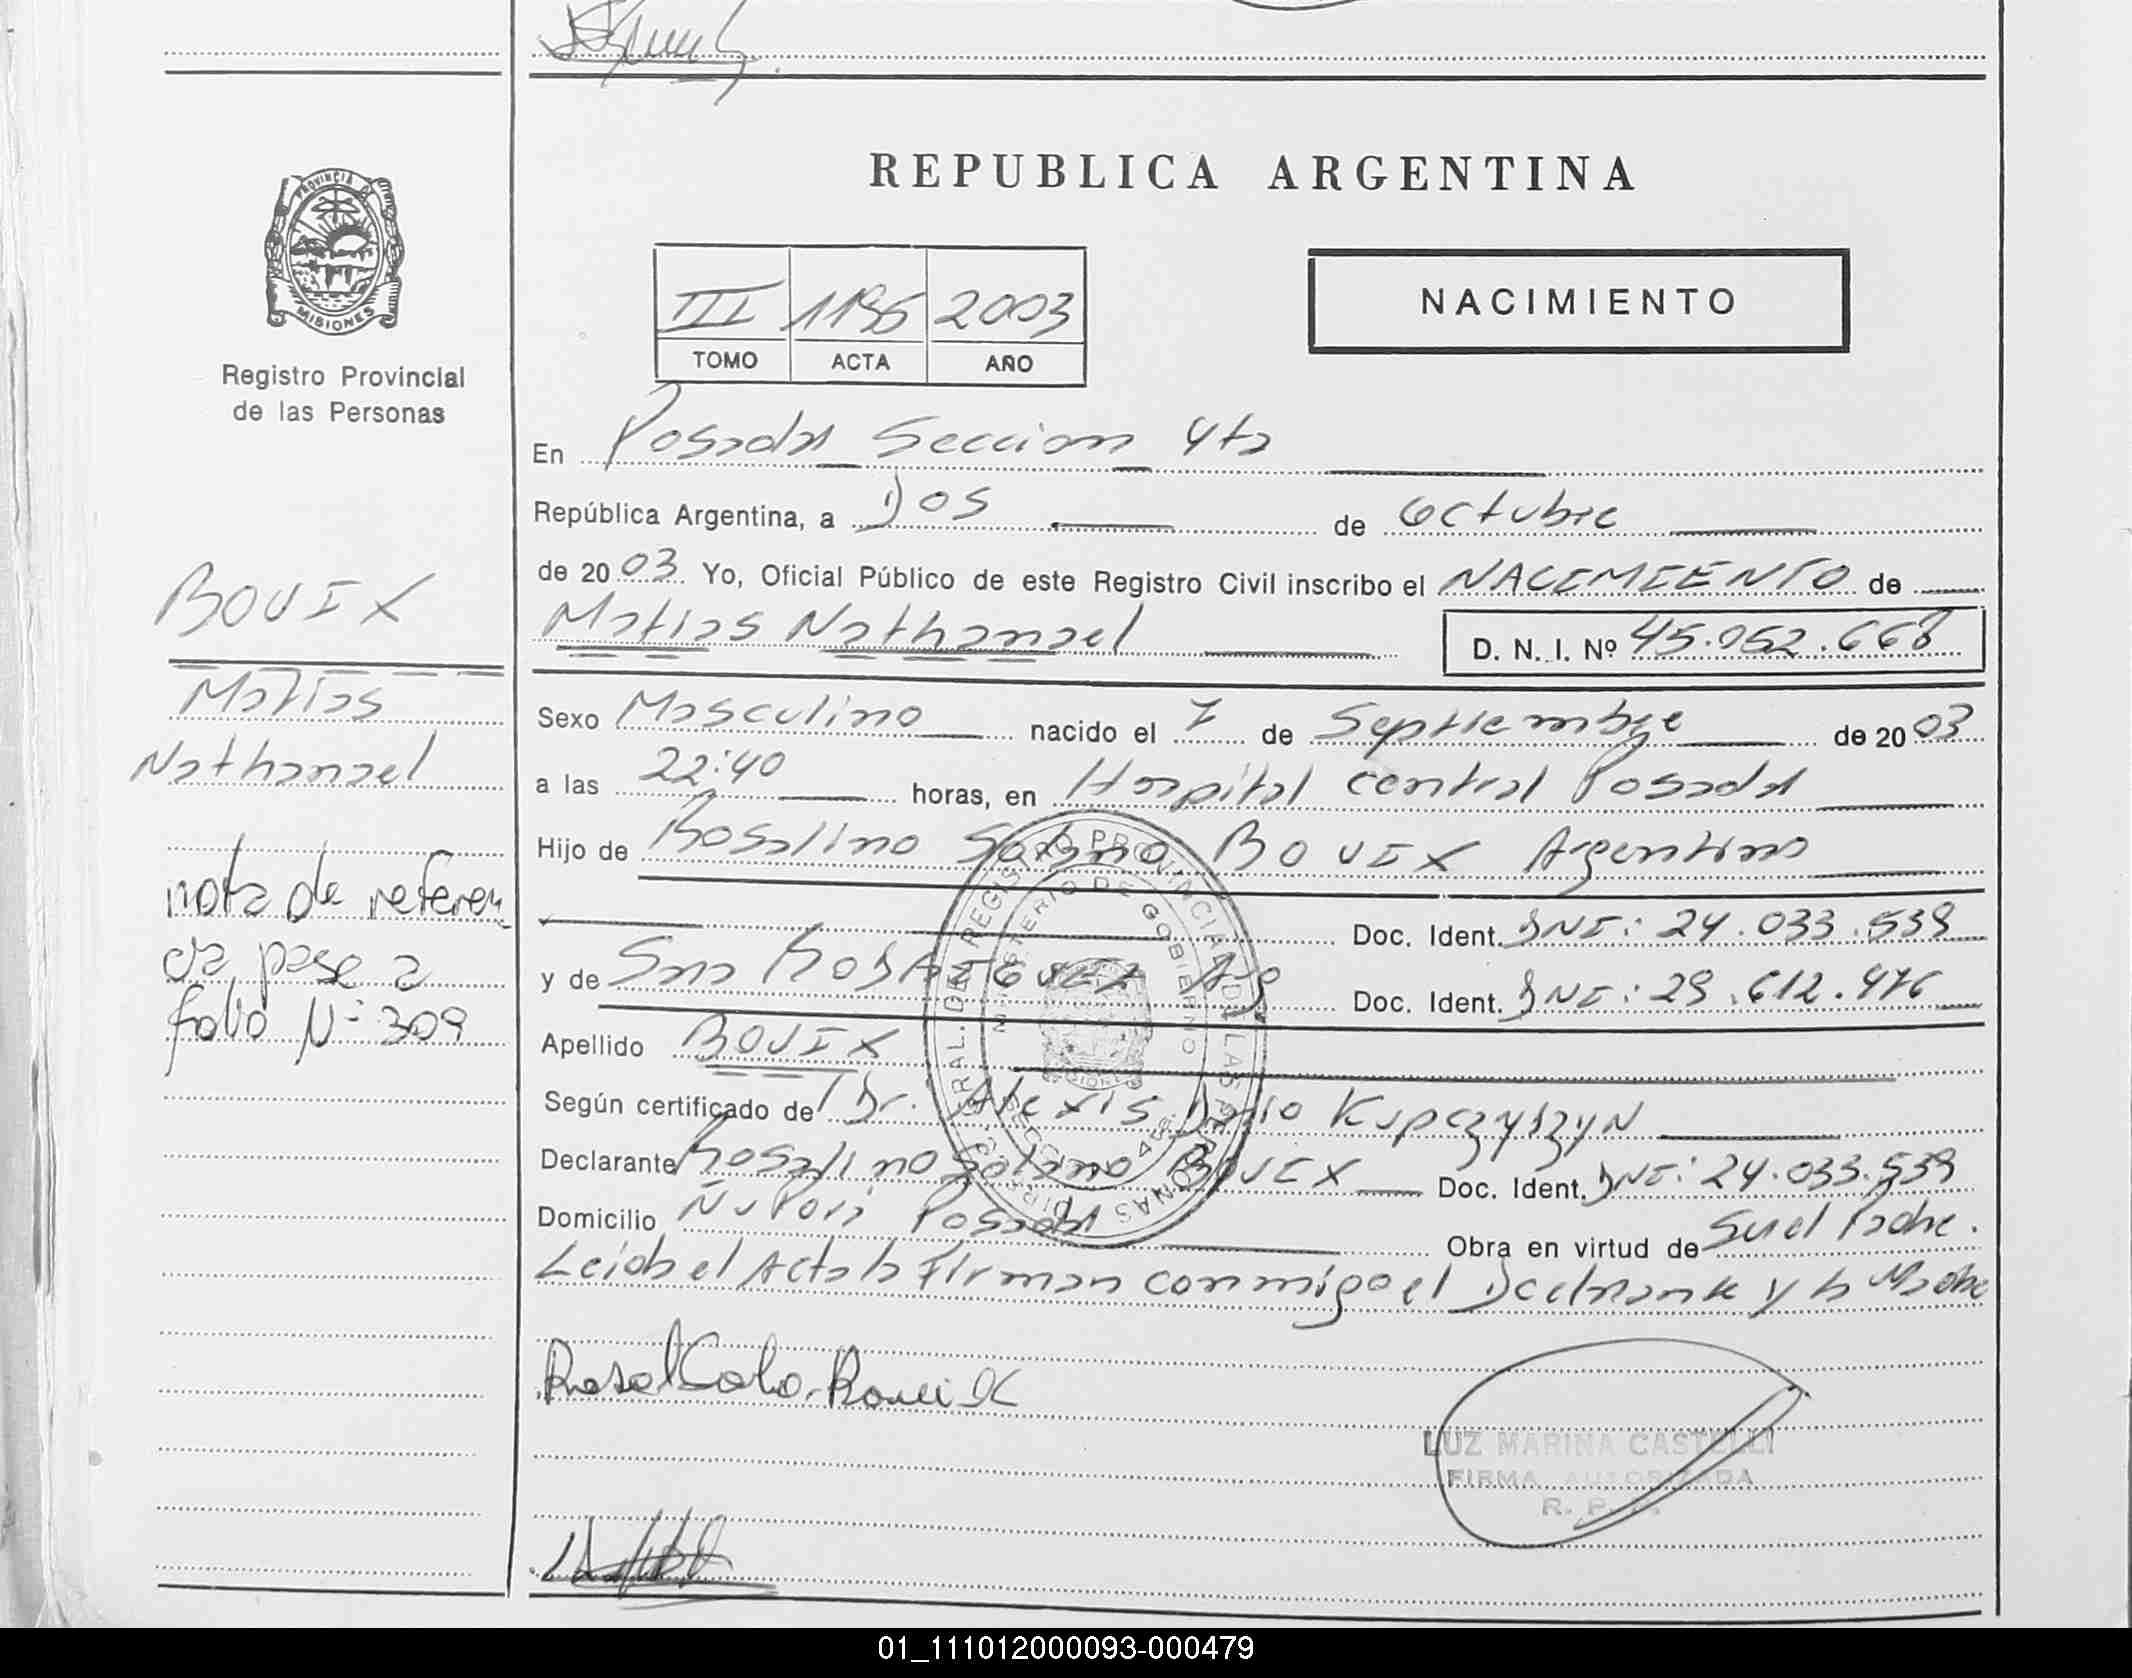 REPUBLICA ARGENTINA
PROVINCIA DE
MISIONES
Registro Provincial
de las Personas
III 1196 2003
TOMO ACTA AÑO
NACIMIENTO
En Posadas Seccion 4ta
República Argentina, a Dos de Octubre
de 2003 Yo, Oficial Público de este Registro Civil inscribo el NACIMIENTO de
Matias Nathanael D. N. I. Nº 45.052.668
BOUIX
Matias
Nathanael
nota de referen
cia pase a
folio Nº 309
Sexo Masculino nacido el 7 de Septiembre de 2003
a las 22:40 horas, en Hospital central Posadas
Hijo de Rosalino Solano BOUIX Argentino
Doc. Ident. DNI: 24.033.539
y de Sna RODRIGUEZ Arg Doc. Ident. DNI: 29.612.476
Apellido BOUIX
Según certificado de Dr. Alexis Dario Kupczyszyn
Declarante Rosalino Solano BOUIX Doc. Ident. DNI: 24.033.539
Domicilio Ñu Pora Posadas Obra en virtud de Ser el Padre.
Leida el Acta la Firman conmigo el Declarante y la Madre
DIRECC. GRAL. DEL REGISTRO PROVINCIAL DE LAS PERSONAS
MINISTERIO DE GOBIERNO
LUZ MARINA CASTELLI
FIRMA AUTORIZADA
R. P. P.
01_111012000093-000479